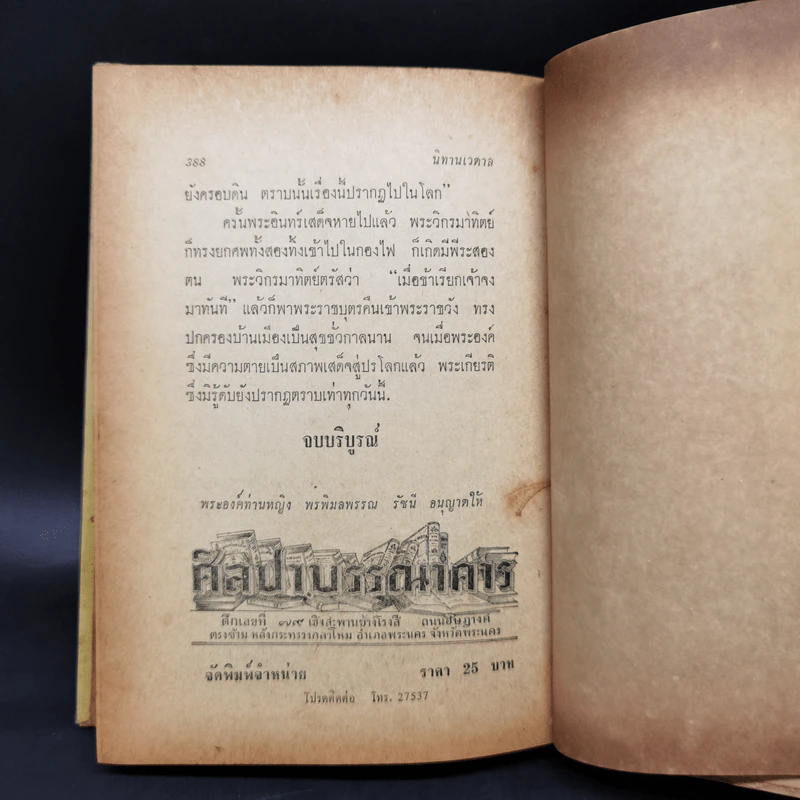 388 นิทานเวตาล
ยังครอบดิน ตราบนั้นเรื่องนี้ปรากฏไปในโลก”
ครั้นพระอินทร์เสด็จหายไปแล้ว พระวิกรมาทิตย์
ก็ทรงยกศพทั้งสองทิ้งเข้าไปในกองไฟ ก็เกิดมีพีระสอง
ตน พระวิกรมาทิตย์ตรัสว่า “เมื่อข้าเรียกเจ้าจง
มาทันที” แล้วก็พาพระราชบุตรคืนเข้าพระราชวัง ทรง
ปกครองบ้านเมืองเป็นสุขชั่วกาลนาน จนเมื่อพระองค์
ซึ่งมีความตายเป็นสภาพเสด็จสู่ปรโลกแล้ว พระเกียรติ
ซึ่งมิรู้ดับยังปรากฏตราบเท่าทุกวันนี้.
จบบริบูรณ์
พระองค์ท่านหญิง พรพิมลพรรณ รัชนี อนุญาตให้
ศิลปาบรรณาคาร
ตึกเลขที่ ๗๙๙ เชิงสะพานช้างโรงสี ถนนอัษฎางค์
ตรงข้าม หลังกระทรวงกลาโหม อำเภอพระนคร จังหวัดพระนคร
จัดพิมพ์จำหน่าย ราคา 25 บาท
โปรดติดต่อ โทร. 27537